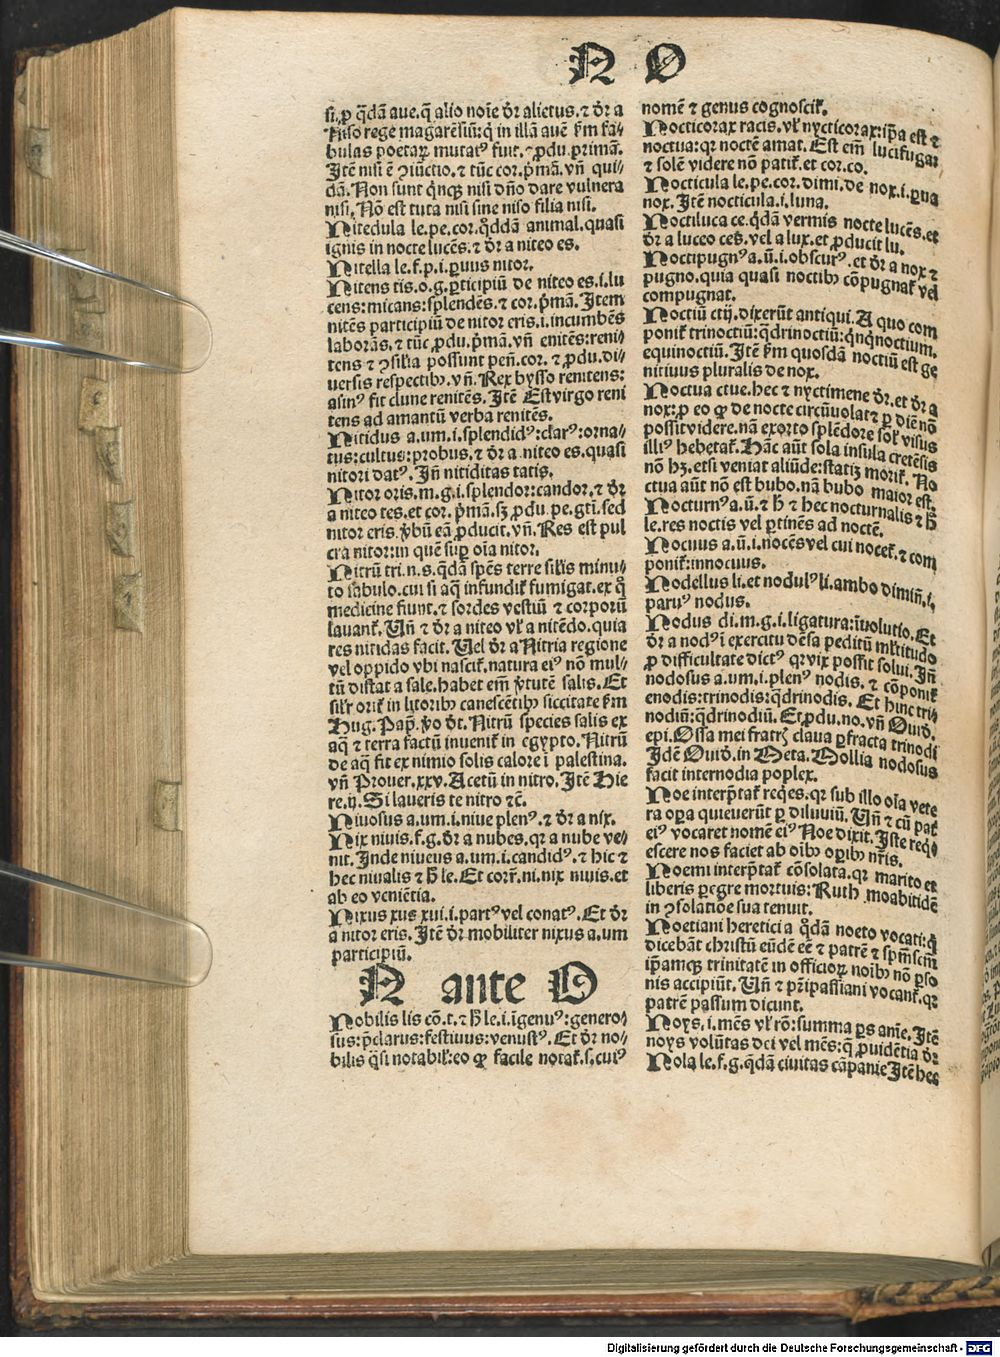 N O
si. ꝓ q̄dā aue. q̄ alio noīe d̄r alietus. ⁊ d̄r a
Niso rege magarēsiū: q̄ in illā auē fm̄ fa⸗
bulas poetaꝝ mutatꝰ fuit. ⁊ ꝓdu. primā.
Itē nisi ē ꝯiūctio. ⁊ tūc cor. p̄mā. vn̄ qui⸗
dā. Non sunt q̄nꝗ nisi dn̄o dare vulnera
nisi. Nō est tuta nisi sine niso filia nisi.
Nitedula le. pe. cor. q̊ddā animal. quasi
ignis in nocte lucēs. ⁊ d̄r a niteo es.
Nitella le. f. p. i. ꝑuus nitor.
Nitens tis. o. g. ꝑticipiū de niteo es. i. lu
cens: micans: splendēs. ⁊ cor. p̄mā. Item
nitēs participiū de nitor eris. i. incumbēs
laborās. ⁊ tūc ꝓdu. p̄mā. vn̄ enitēs: reni⸗
tens ⁊ ꝯsilia possunt pen̄. cor. ⁊ ꝓdu. di⸗
uersis respectibꝰ. vn̄. Rex bysso renitens:
asinꝰ fit clune renitēs. Itē Est virgo reni
tens ad amantū verba renitēs.
Nitidus a. um. i. splendidꝰ: clarꝰ: orna⸗
tus: cultus: probus. ⁊ d̄r a niteo es. quasi
nitori datꝰ. In̄ nitiditas tatis.
Nitor oris. m. g. i. splendor: candor. ⁊ d̄r
a niteo tes. et cor. p̄mā. sꝫ ꝓdu. pe. gt̄i. sed
nitor eris. v̄bū eā ꝓducit. vn̄. Res est pul
cra nitor: in quē sup̄ oīa nitor.
Nitrū tri. n. s. q̄dā spēs terre sil̄is minu⸗
to sabulo. cui si aq̄ infundit̄ fumigat. ex q̊
medicine fiunt. ⁊ sordes vestiū ⁊ corporū
lauant̄. Un̄ ⁊ d̄r a niteo vl̄ a nitēdo. quia
res nitidas facit. Uel d̄r a Nitria regione
vel oppido vbi nascit̄. natura eiꝰ nō mul⸗
tū distat a sale. habet em̄ v̄tutē salis. Et
sil̄r orit̄ in litoribꝰ canescētibꝰ siccitate fm̄
Hug. Pap. v̄o d̄t. Nitrū species salis ex
aq̄ ⁊ terra factū inuenit̄ in egypto. Nitrū
de aq̄ fit ex nimio solis calore ī palestina.
vn̄ Prouer. xxv. Acetū in nitro. Itē Hie
re. ij. Si laueris te nitro ⁊c̄.
Niuosus a. um. i. niue plenꝰ. ⁊ d̄r a nix.
Nix niuis. f. g. d̄r a nubes. qꝛ a nube ve⸗
nit. Inde niueus a. um. i. candidꝰ. ⁊ hic ⁊
hec niualis ⁊ h̄ le. Et corr̄. ni. nix niuis. et
ab eo veniētia.
Nixus xus xui. i. partꝰ vel conatꝰ. Et d̄r
a nitor eris. Itē d̄r mobiliter nixus a. um
participiū.
N ante O
Nobilis lis cō. t. ⁊ h̄ le. i. īgenuꝰ: genero⸗
sus: p̄clarus: festiuus: venustꝰ. Et d̄r no⸗
bilis q̄si notabil̄: eo ꝙ facile notat̄. s. cuiꝰ
nomē ⁊ genus cognoscit̄.
Nocticorax racis. vl̄ nycticorax: ip̄a est ⁊
noctua: qꝛ noctē amat. Est em̄ lucifuga:
⁊ solē videre nō patit̄. et cor. co.
Nocticula le. pe. cor. dimi. de nox. i. ꝑua
nox. Itē nocticula. i. luna.
Noctiluca ce. q̄dā vermis nocte lucēs. et
d̄r a luceo ces. vel a lux. et ꝓducit lu.
Noctipugnꝰ a. ū. i. obscurꝰ. et d̄r a nox ⁊
pugno. quia quasi noctibꝰ cōpugnat̄ vel
compugnat.
Noctiū ctij. dixerūt antiqui. A quo com
ponit̄ trinoctiū: q̄drinoctiū: q̄nq̄noctium.
equinoctiū. Itē fm̄ quosdā noctiū est ge
nitiuus pluralis de nox.
Noctua ctue. hec ⁊ nyctimene d̄r. et d̄r a
nox: ꝑ eo ꝙ de nocte circūuolat ⁊ ꝑ diē nō
possit videre. nā exorto splēdore sol̄ visus
illiꝰ hebetat̄. Hāc aūt sola insula cretēsis
nō hꝫ. etsi veniat aliūde: statiꝫ morit̄. No
ctua aūt nō est bubo. nā bubo maior est.
Nocturnꝰ a. ū. ⁊ h̄ ⁊ hec nocturnalis ⁊ h̄
le. res noctis vel ꝑtinēs ad noctē.
Nocuus a. ū. i. nocēs vel cui nocet̄. ⁊ com
ponit̄: innocuus.
Nodellus li. et nodulꝰ li. ambo dimin̄. i.
paruꝰ nodus.
Nodus di. m. g. i. ligatura: īuolutio. Et
d̄r a nodꝰ ī exercitu dēsa peditū ml̄titudo
ꝓ difficultate dictꝰ qꝛ vix possit solui. In̄
nodosus a. um. i. plenꝰ nodis. ⁊ cōponit̄
enodis: trinodis: q̄drinodis. Et hinc tri⸗
nodiū: q̄drinodiū. Et ꝓdu. no. vn̄ Ouid̄.
epi. Ossa mei fratrꝭ claua ꝑfracta trinodi
Idē Ouid̄. in Meta. Mollia nodosus
facit internodia poplex.
Noe interp̄tat̄ req̄es. qꝛ sub illo oīa vete
ra oꝑa quieuerūt ꝑ diluuiū. Un̄ ⁊ cū pat̄
eiꝰ vocaret nomē eiꝰ Noe dixit. Iste req̄⸗
escere nos faciet ab oībꝰ oꝑibꝰ nr̄is.
Noemi interp̄tat̄ cōsolata. qꝛ marito et
liberis ꝑegre mortuis: Ruth moabitidē
in ꝯsolatiōe sua tenuit.
Noetiani heretici a q̊dā noeto vocati: q̄
dicebāt christū eūdē eē ⁊ patrē ⁊ spm̄scm̄
ip̄amqꝫ trinitatē in officioꝝ noībꝰ nō ꝑso
nis accipiūt. Un̄ ⁊ pr̄ipassiani vocant̄. qꝛ
patrē passum dicunt.
Noys. i. mēs vl̄ rō: summa ꝑs anīe. Itē
noys volūtas dei vel mēs: q̄ ꝓuidētia d̄r
Nola le. f. g. q̄dā ciuitas cāpanie Itē hec
Digitalisierung gefördert durch die Deutsche Forschungsgemeinschaft - DFG